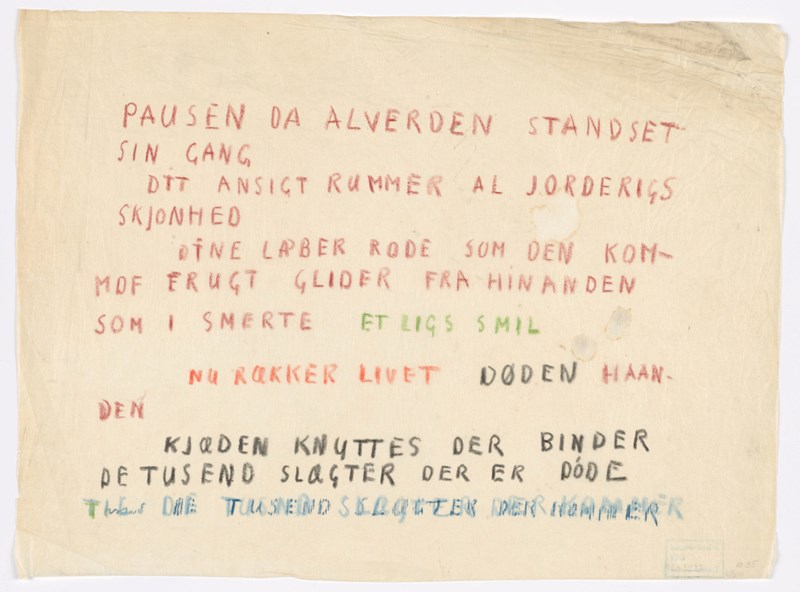 PAUSEN DA ALVERDEN STANDSET
SIN GANG
DIT ANSIGT RUMMER AL JORDERIGS
SKJONHED
DINE LÆBER RODE SOM DEN KOM-
MDE FRUGT GLIDER FRA HINANDEN
SOM I SMERTE ET LIGS SMIL
NU RÆKKER LIVET DØDEN HAAN-
DEN
KJÆDEN KNYTTES DER BINDER
DE TUSEND SLÆGTER DER ER DÓDE
TIL DE TUSEND SLÆGTER DER KOMMER